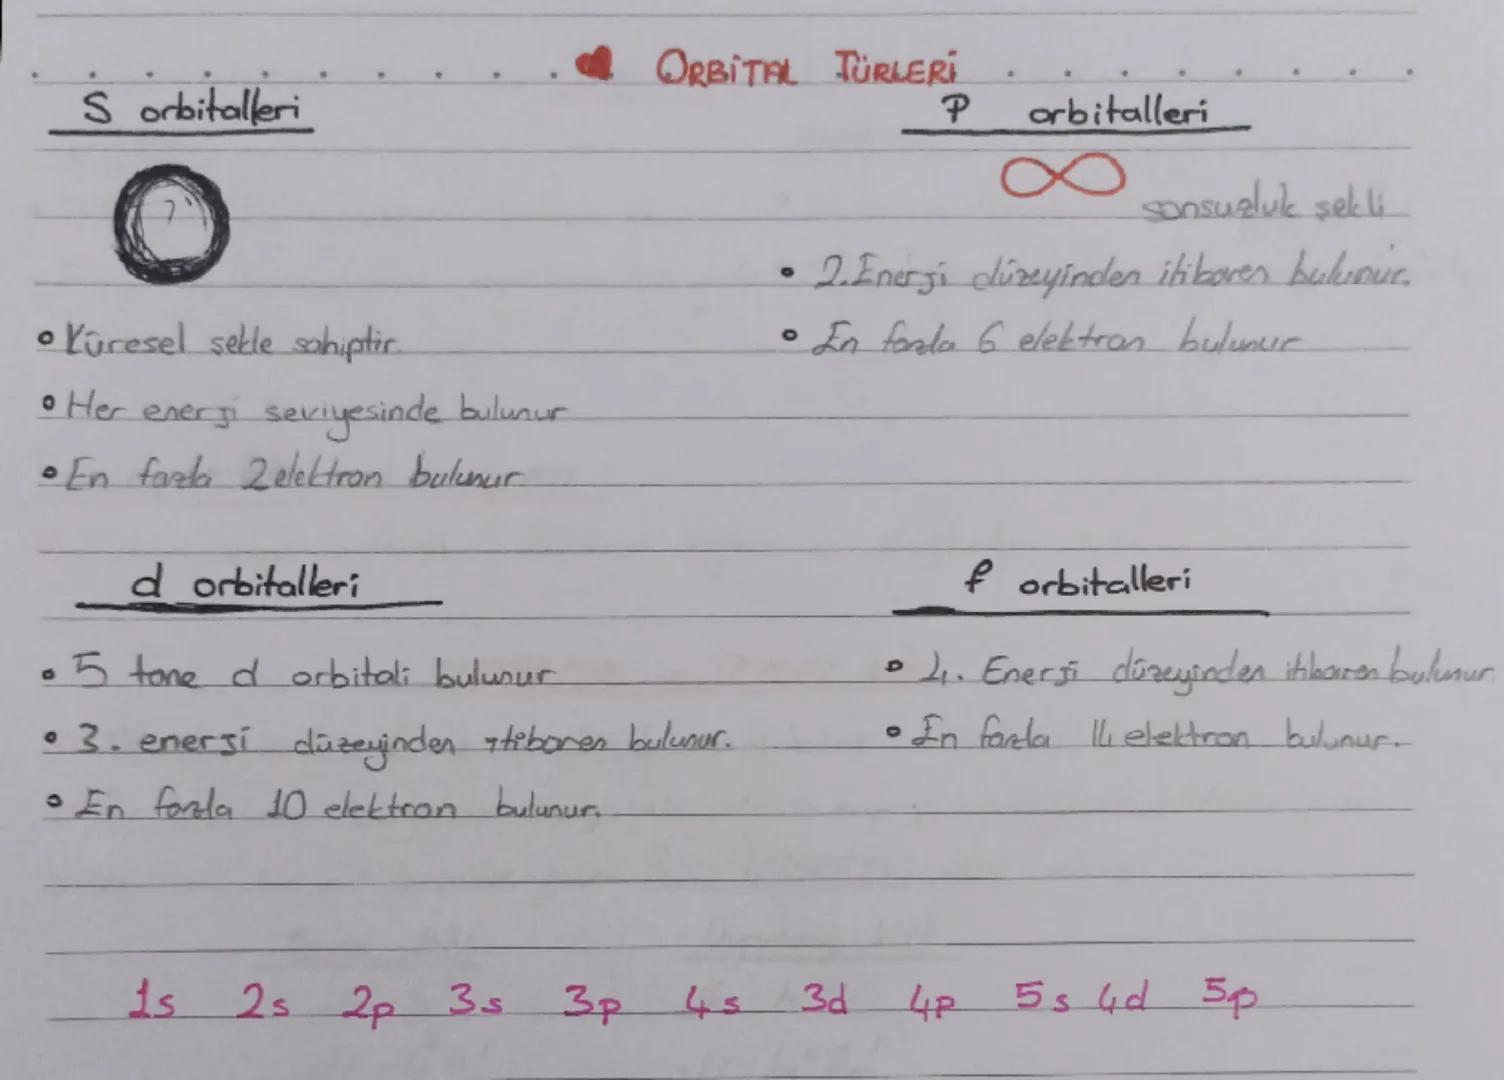 ORBİTAL TÜRLERİ
S orbitalleri
Küresel şekle sahiptir.
Her enerji seviyesinde bulunur
En fazla 2 elektron bulunur
P orbitalleri
sonsuzluk şekli
2. Enerji düzeyinden itibaren bulunur.
En fazla 6 elektron bulunur
d orbitalleri
5 tane d orbitali bulunur
3. enerji düzeyinden itibaren bulunur.
En fazla 10 elektron bulunur.
f orbitalleri
4. Enerji düzeyinden itibaren bulunur
En fazla 14 elektron bulunur.
1s 2s 2p 3s 3p 4s 3d 4p 5s 4d 5p